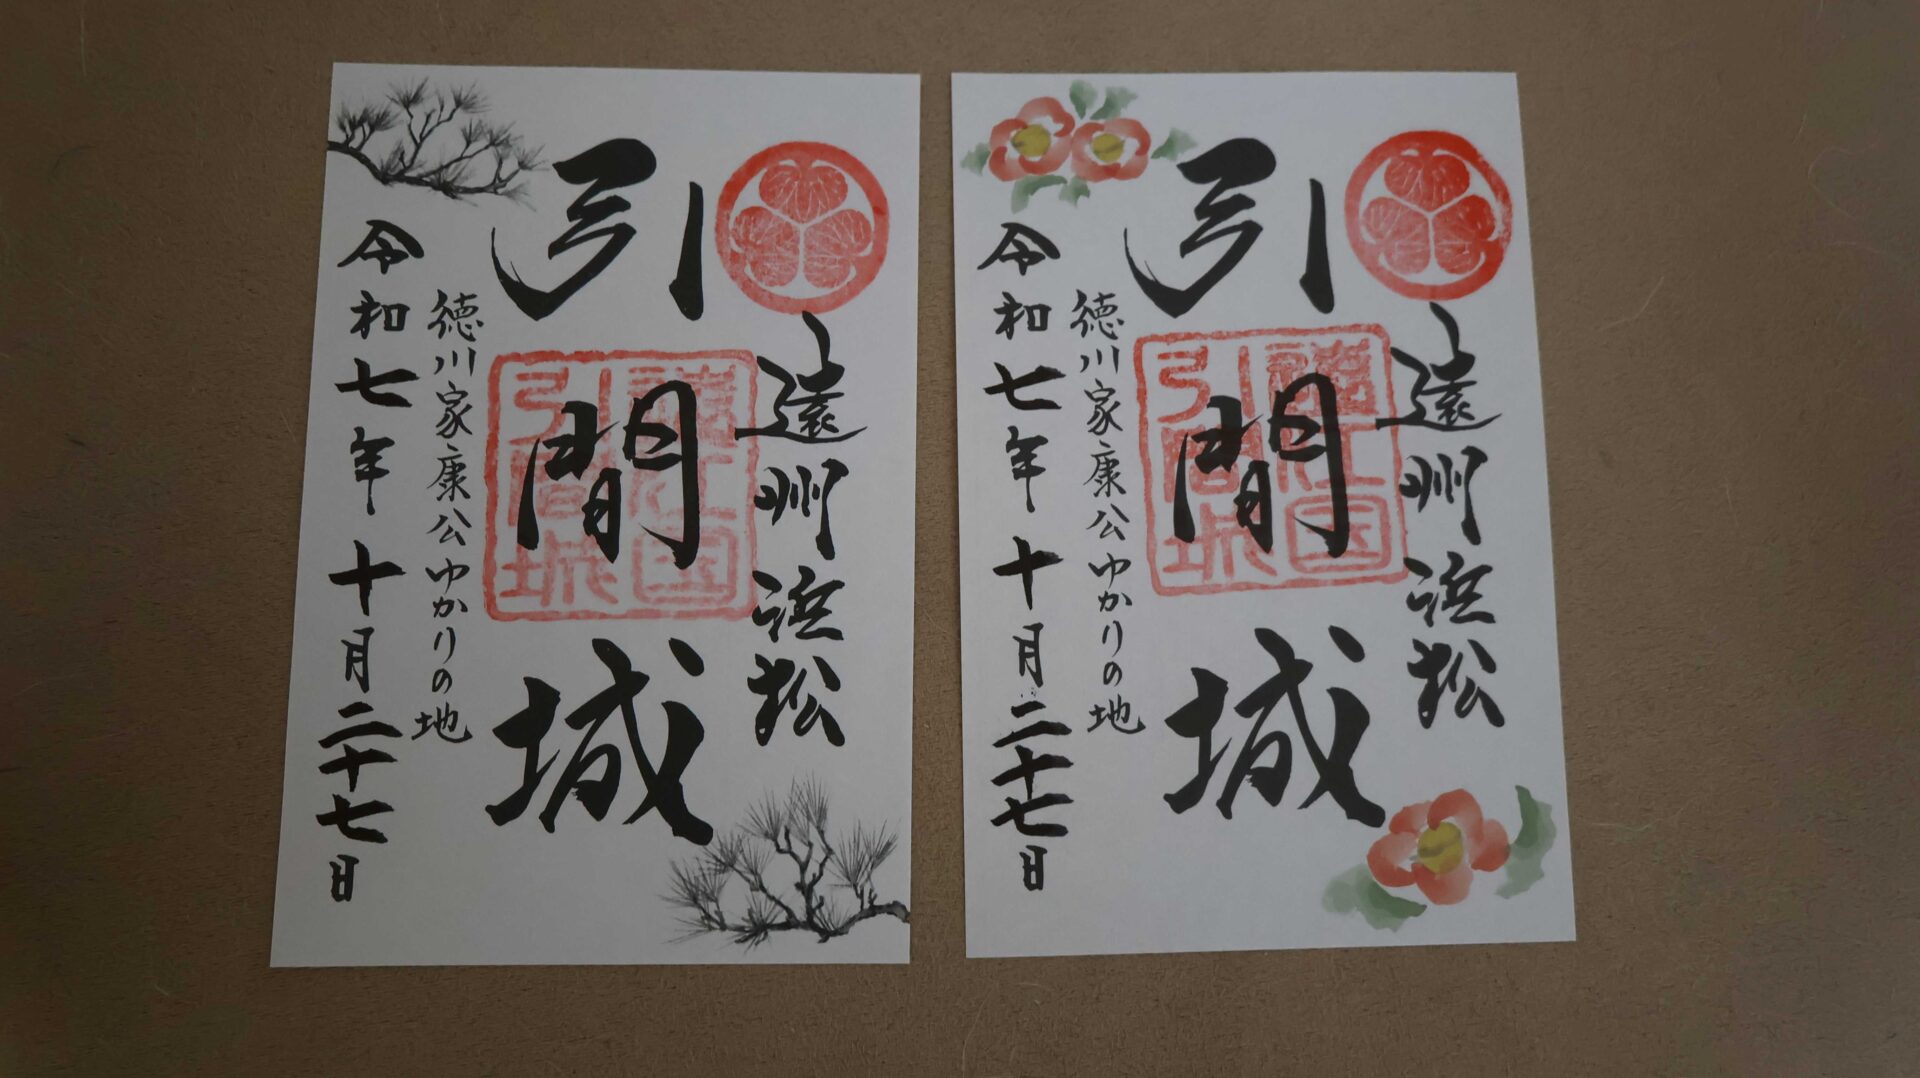 遠州浜松
引間城
遠江国
引間城
徳川家康公ゆかりの地
令和七年十月二十七日
遠州浜松
引間城
遠江国
引間城
徳川家康公ゆかりの地
令和七年十月二十七日